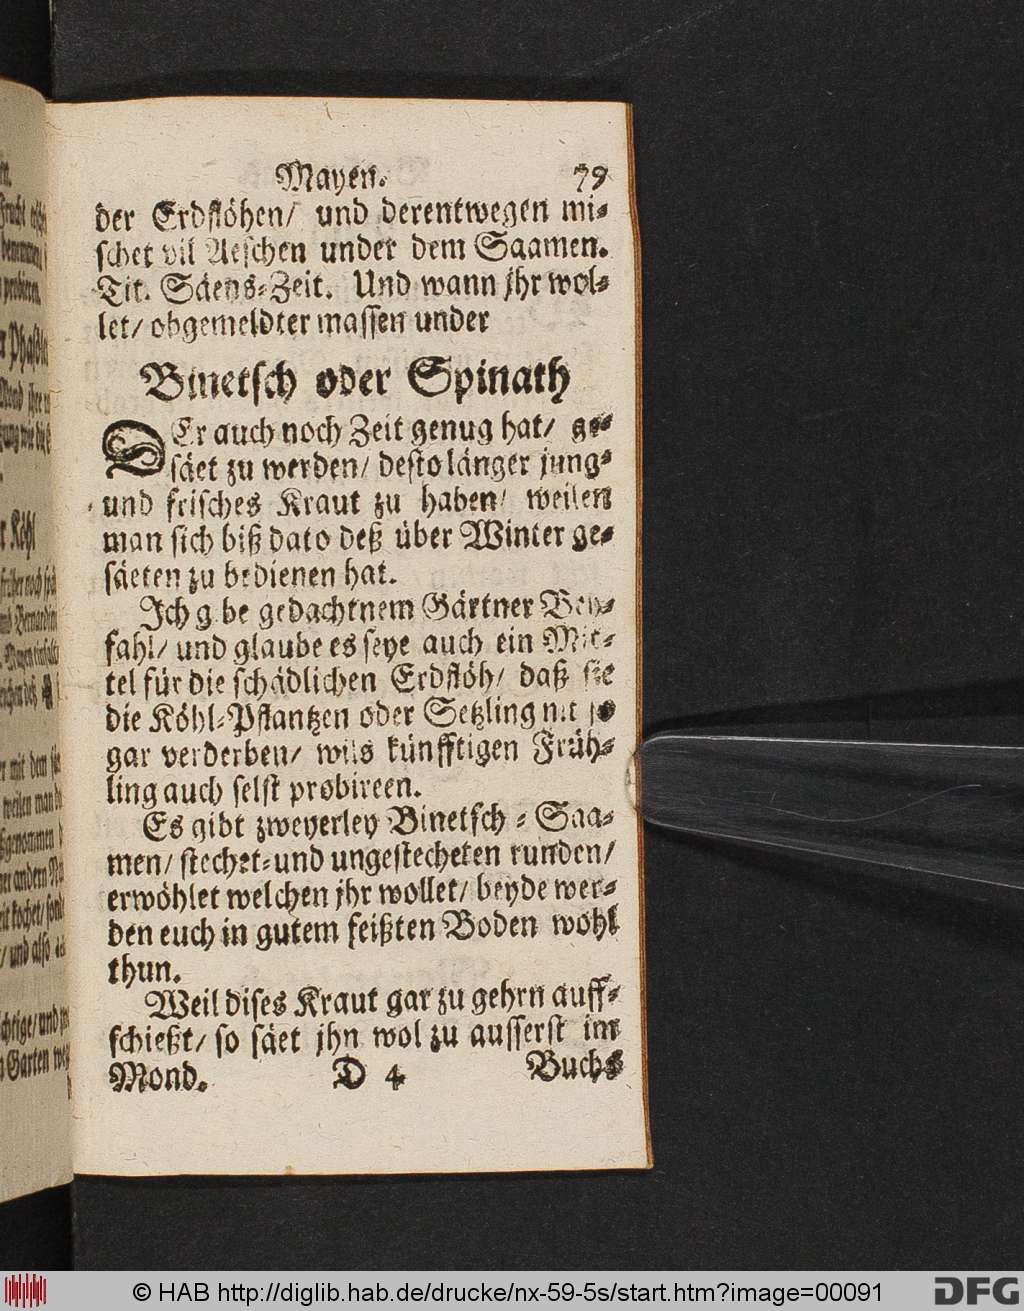 Mayen. 79
der Erdflöhen/ und derentwegen mi-
schet vil Aeschen under dem Saamen.
Tit. Säens-Zeit. Und wann jhr wol-
let/ obgemeldter massen under
Binetsch oder Spinath
DEr auch noch Zeit genug hat/ ge-
säet zu werden/ desto länger jung-
und frisches Kraut zu haben/ weilen
man sich biß dato deß über Winter ge-
säeten zu bedienen hat.
Jch gibe gedachtnem Gärtner Bey-
fahl/ und glaube es seye auch ein Mit-
tel für die schädlichen Erdflöh/ daß sie
die Köhl-Pflantzen oder Setzling nit so
gar verderben/ wils künfftigen Früh-
ling auch selst probireen.
Es gibt zweyerley Binetsch-Saa-
men/ stechet-und ungestecheten runden/
erwöhlet welchen jhr wollet/ beyde wer-
den euch in gutem feißten Boden wohl
thun.
Weil dises Kraut gar zu gehrn auff-
schießt/ so säet jhn wol zu ausserst im
Mond. D 4 Buchs
© HAB http://diglib.hab.de/drucke/nx-59-5s/start.htm?image=00091
DFG